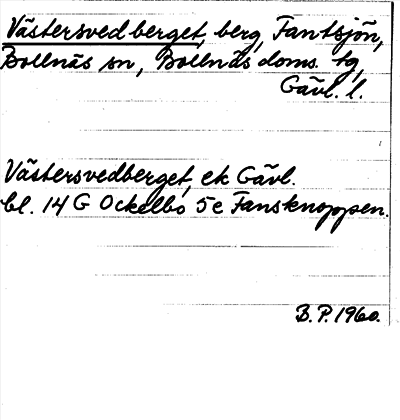 Västersvedberget, berg, Fantsjön,
Bollnäs sn, Bollnäs doms. tg,
Gävl. l.
Västersvedberget, ek Gävl.
bl. 14 G Ockelbo 5e Fansknoppen.
B. P. 1960.